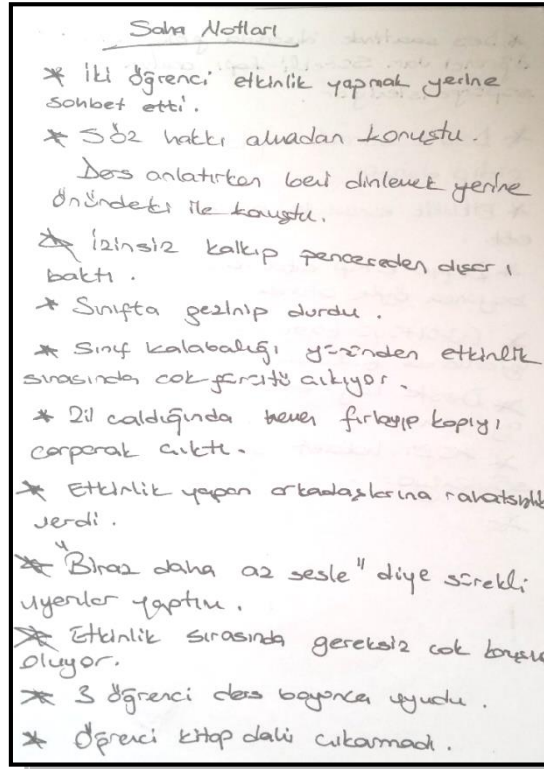 Saha Notları
* İki öğrenci etkinlik yapmak yerine
sohbet etti.
* Söz hakkı almadan konuştu.
Ders anlatırken beni dinlemek yerine
önündeki ile konuştu.
* İzinsiz kalkıp pencereden dışarı
baktı.
* Sınıfta gezinip durdu.
* Sınıf kalabalığı yüzünden etkinlik
sırasında çok gürültü çıkıyor.
* Zil çaldığında hemen fırlayıp kapıyı
çarparak çıktı.
* Etkinlik yapan arkadaşlarına rahatsızlık
verdi.
* "Biraz daha az sesle" diye sürekli
uyarılar yaptım.
* Etkinlik sırasında gereksiz çok
oluyor.
* 3 öğrenci ders boyunca uyudu.
* Öğrenci kitap dahi çıkarmadı.